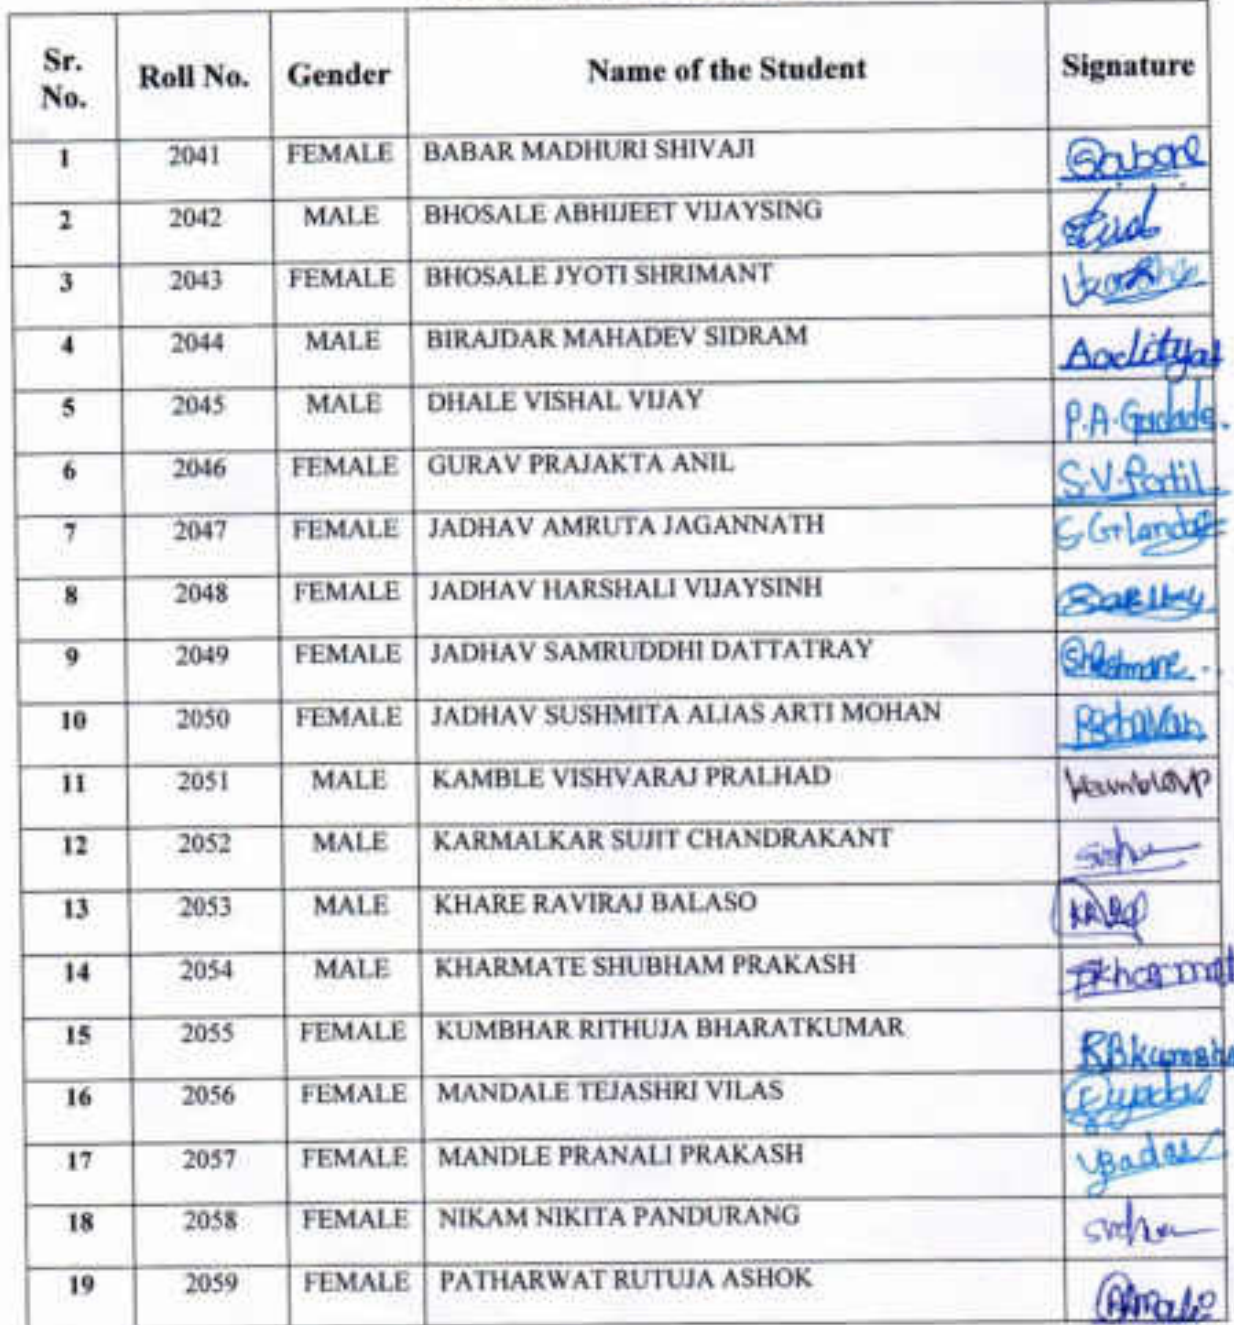 Sr. No. Roll No. Gender Name of the Student Signature
1 2041 FEMALE BABAR MADHURI SHIVAJI
2 2042 MALE BHOSALE ABHIJEET VIJAYSING
3 2043 FEMALE BHOSALE JYOTI SHRIMANT
4 2044 MALE BIRAJDAR MAHADEV SIDRAM
5 2045 MALE DHALE VISHAL VIJAY P.A.Gadade.
6 2046 FEMALE GURAV PRAJAKTA ANIL S.V.Patil
7 2047 FEMALE JADHAV AMRUTA JAGANNATH
8 2048 FEMALE JADHAV HARSHALI VIJAYSINH
9 2049 FEMALE JADHAV SAMRUDDHI DATTATRAY
10 2050 FEMALE JADHAV SUSHMITA ALIAS ARTI MOHAN
11 2051 MALE KAMBLE VISHVARAJ PRALHAD KambleVP
12 2052 MALE KARMALKAR SUJIT CHANDRAKANT
13 2053 MALE KHARE RAVIRAJ BALASO
14 2054 MALE KHARMATE SHUBHAM PRAKASH
15 2055 FEMALE KUMBHAR RITHUJA BHARATKUMAR
16 2056 FEMALE MANDALE TEJASHRI VILAS
17 2057 FEMALE MANDLE PRANALI PRAKASH
18 2058 FEMALE NIKAM NIKITA PANDURANG
19 2059 FEMALE PATHARWAT RUTUJA ASHOK